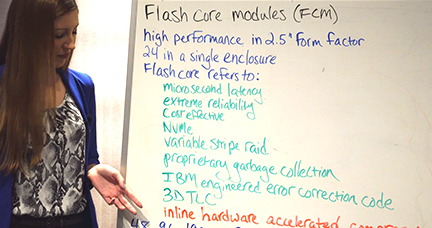 Flash core modules (FCM)
high performance in 2.5" form factor
24 in a single enclosure
Flash core refers to:
microsecond latency
extreme reliability
Cost effective
NVMe
variable stripe raid
proprietary garbage collection
IBM engineered error correction code
3D TLC
inline hardware accelerated